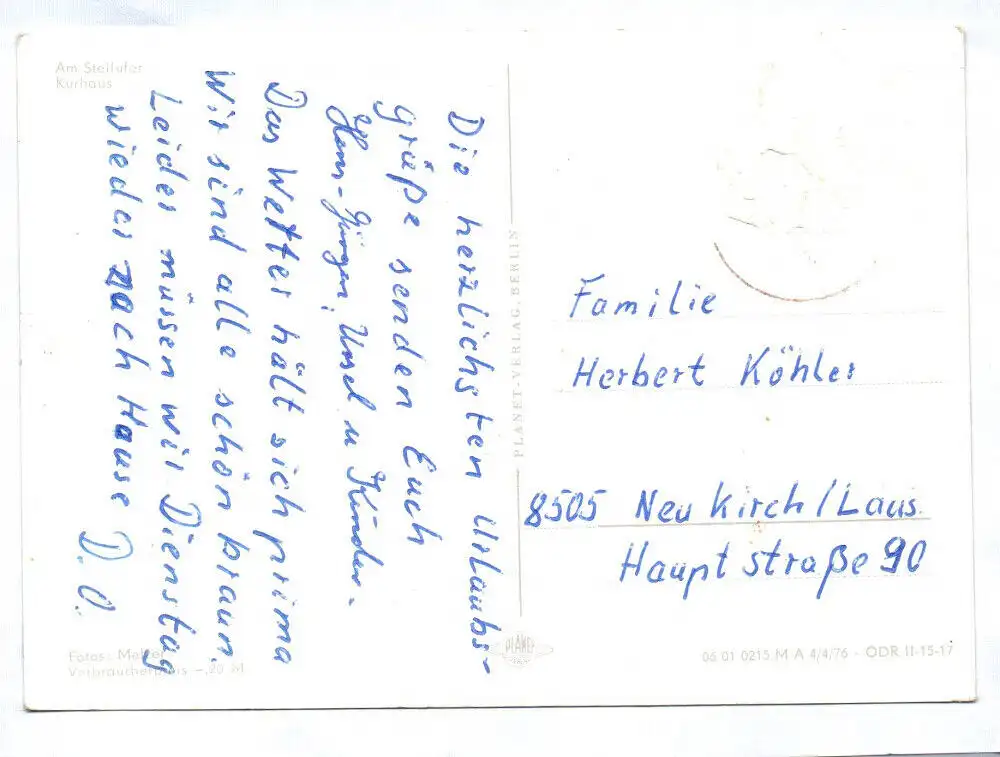 Am Steilufer
Kurhaus
Die herzlichsten Urlaubs-
grüße senden Euch
Hans-Jürgen, Ursel u Kinder.
Das Wetter hält sich prima
Wir sind alle schön braun.
Leider müssen wir Dienstag
wieder nach Hause D. O.
PLANET-VERLAG, BERLIN
Familie
Herbert Köhler
8505 Neukirch/Laus.
Hauptstraße 90
Fotos:
Verbraucherpreis -,20 M
PLANET
06 01 0215 M A 4/4/76 - ODR II-15-17